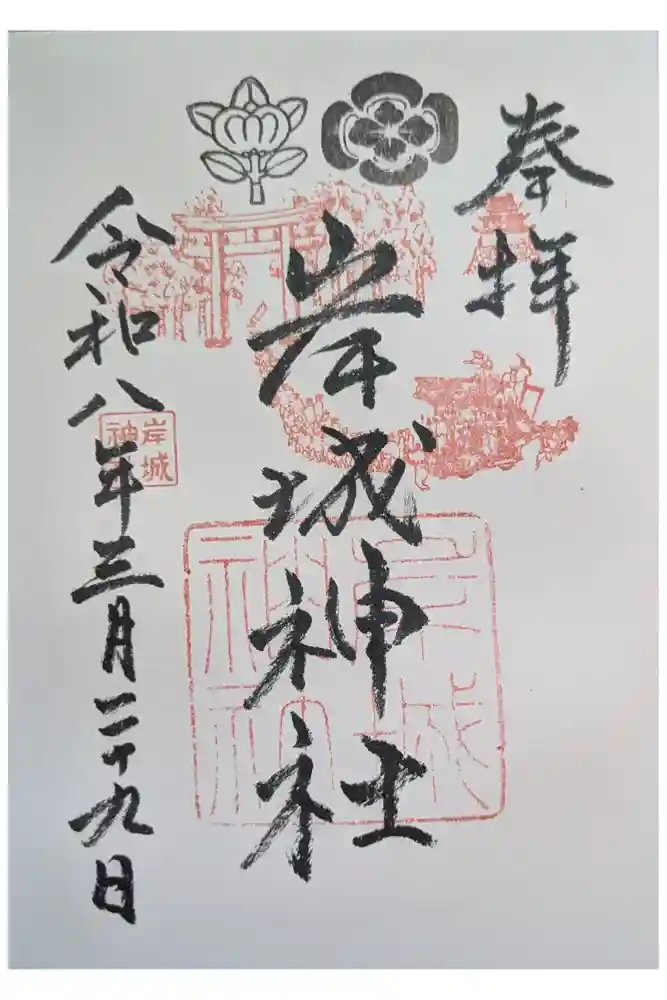 奉拝
岸城神社
令和八年三月二十九日
岸城
神
岸城
神社